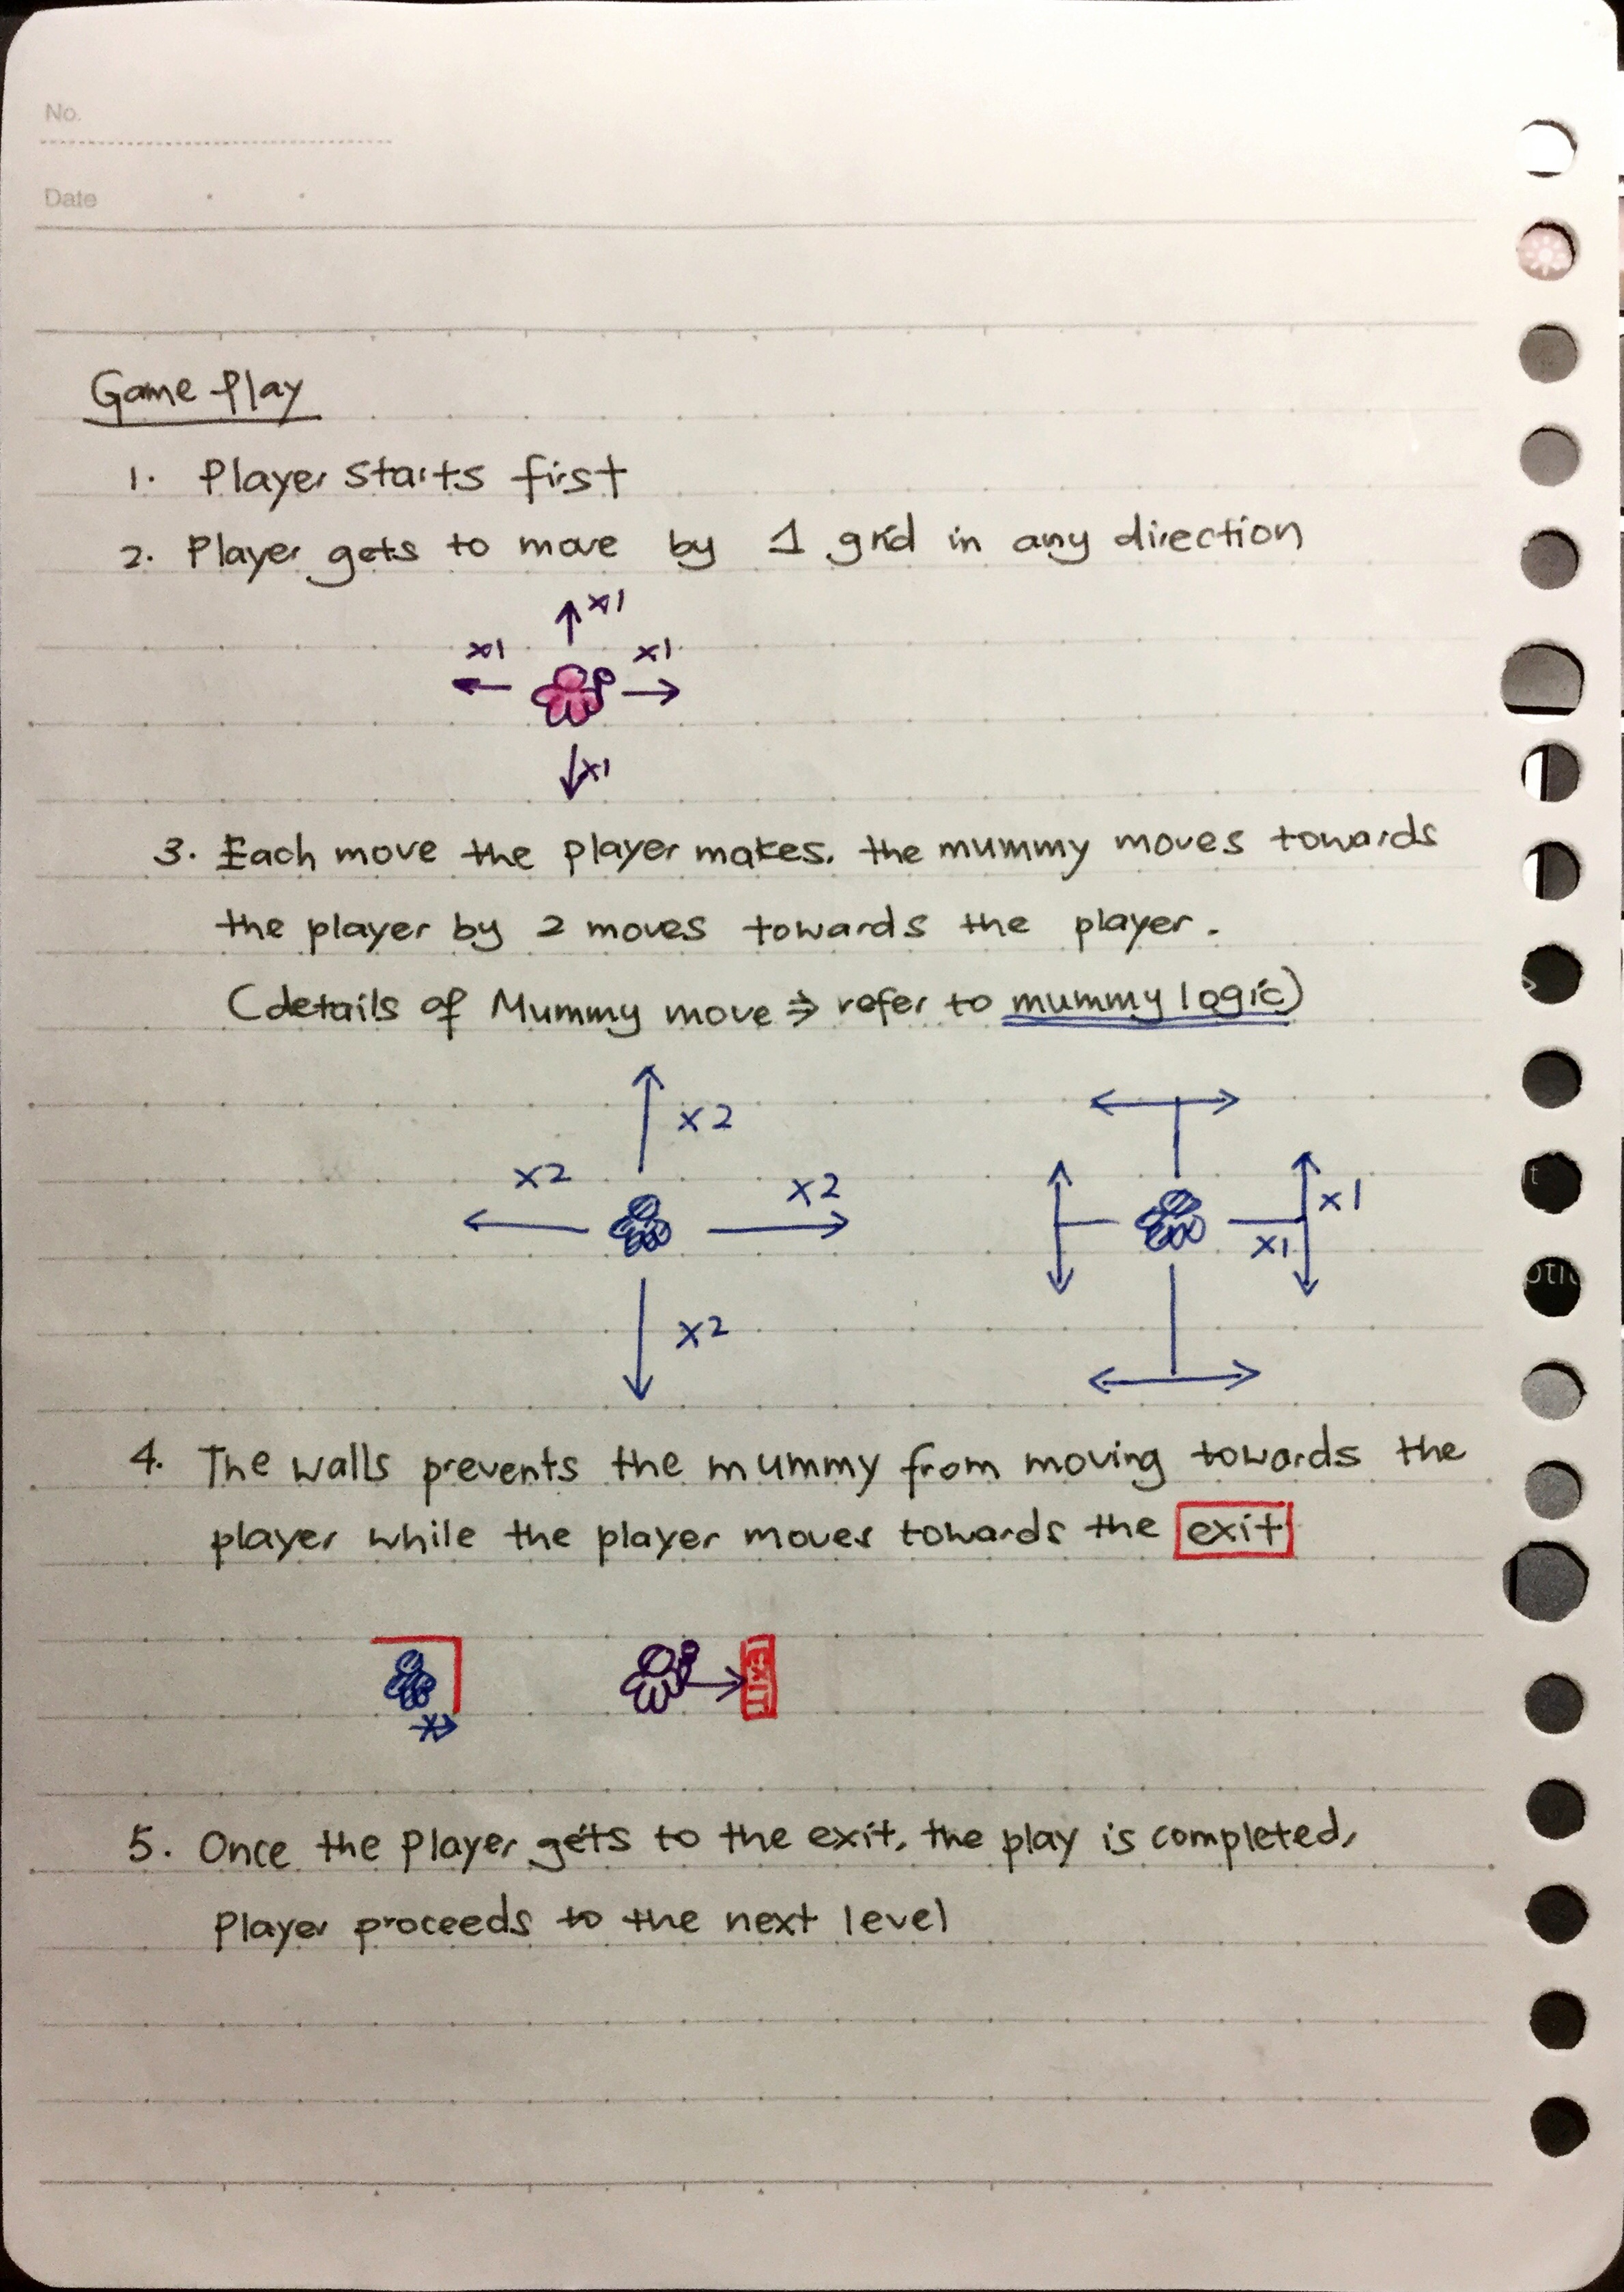 No.
Date
Game Play
1. Player starts first
2. Player gets to move by 1 grid in any direction
x1
x1
x1
x1
3. Each move the player makes, the mummy moves towards
the player by 2 moves towards the player.
(details of Mummy move ⇒ refer to mummy logic)
x2
x2
x2
x2
x1
x1
4. The walls prevents the mummy from moving towards the
player while the player moves towards the exit
EXIT
5. Once the Player gets to the exit, the play is completed,
Player proceeds to the next level